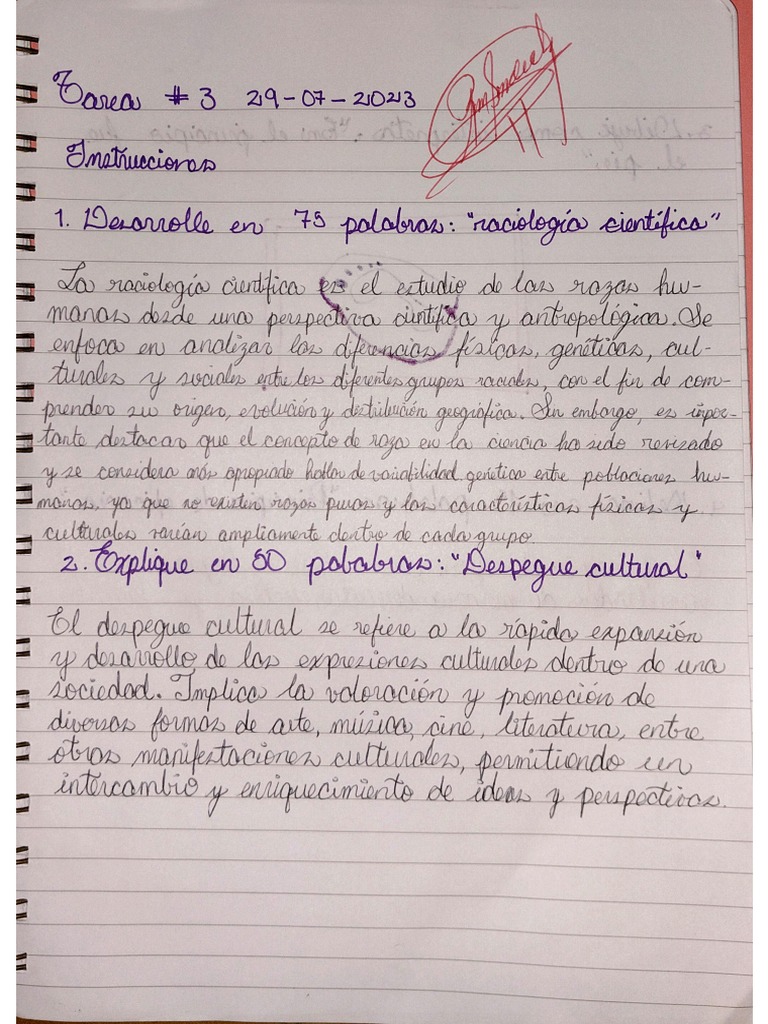 Tarea # 3 29-07-2023
Instrucciones
1. Desarrolle en 75 palabras: "raciología científica"
La raciología científica es el estudio de las razas hu-
manas desde una perspectiva científica y antropológica. Se
enfoca en analizar las diferencias físicas, genéticas, cul-
turales y sociales entre los diferentes grupos raciales, con el fin de com-
prender su origen, evolución y distribución geográfica. Sin embargo, es impor-
tante destacar que el concepto de raza en la ciencia ha sido revisado
y se considera más apropiado hablar de variabilidad genética entre poblaciones hu-
manas, ya que no existen razas puras y las características físicas y
culturales varían ampliamente dentro de cada grupo.
2. Explique en 50 palabras: "Despegue cultural"
El despegue cultural se refiere a la rápida expansión
y desarrollo de las expresiones culturales dentro de una
sociedad. Implica la valoración y promoción de
diversas formas de arte, música, cine, literatura, entre
otras manifestaciones culturales, permitiendo un
intercambio y enriquecimiento de ideas y perspectivas.